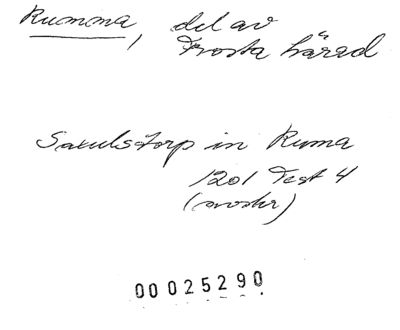 Rumma, del av
Frosta härad
Saxulstorp in Ruma
1201 Test 4
(avskr)
00025290